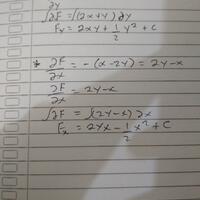 ∂y
∫∂F = ∫(2x+y) ∂y
Fy = 2xy + 1/2 y² + c
* ∂F/∂x = -(x-2y) = 2y-x
∂F/∂x = 2y-x
∫∂F = ∫(2y-x) ∂x
Fx = 2yx - 1/2 x² + c